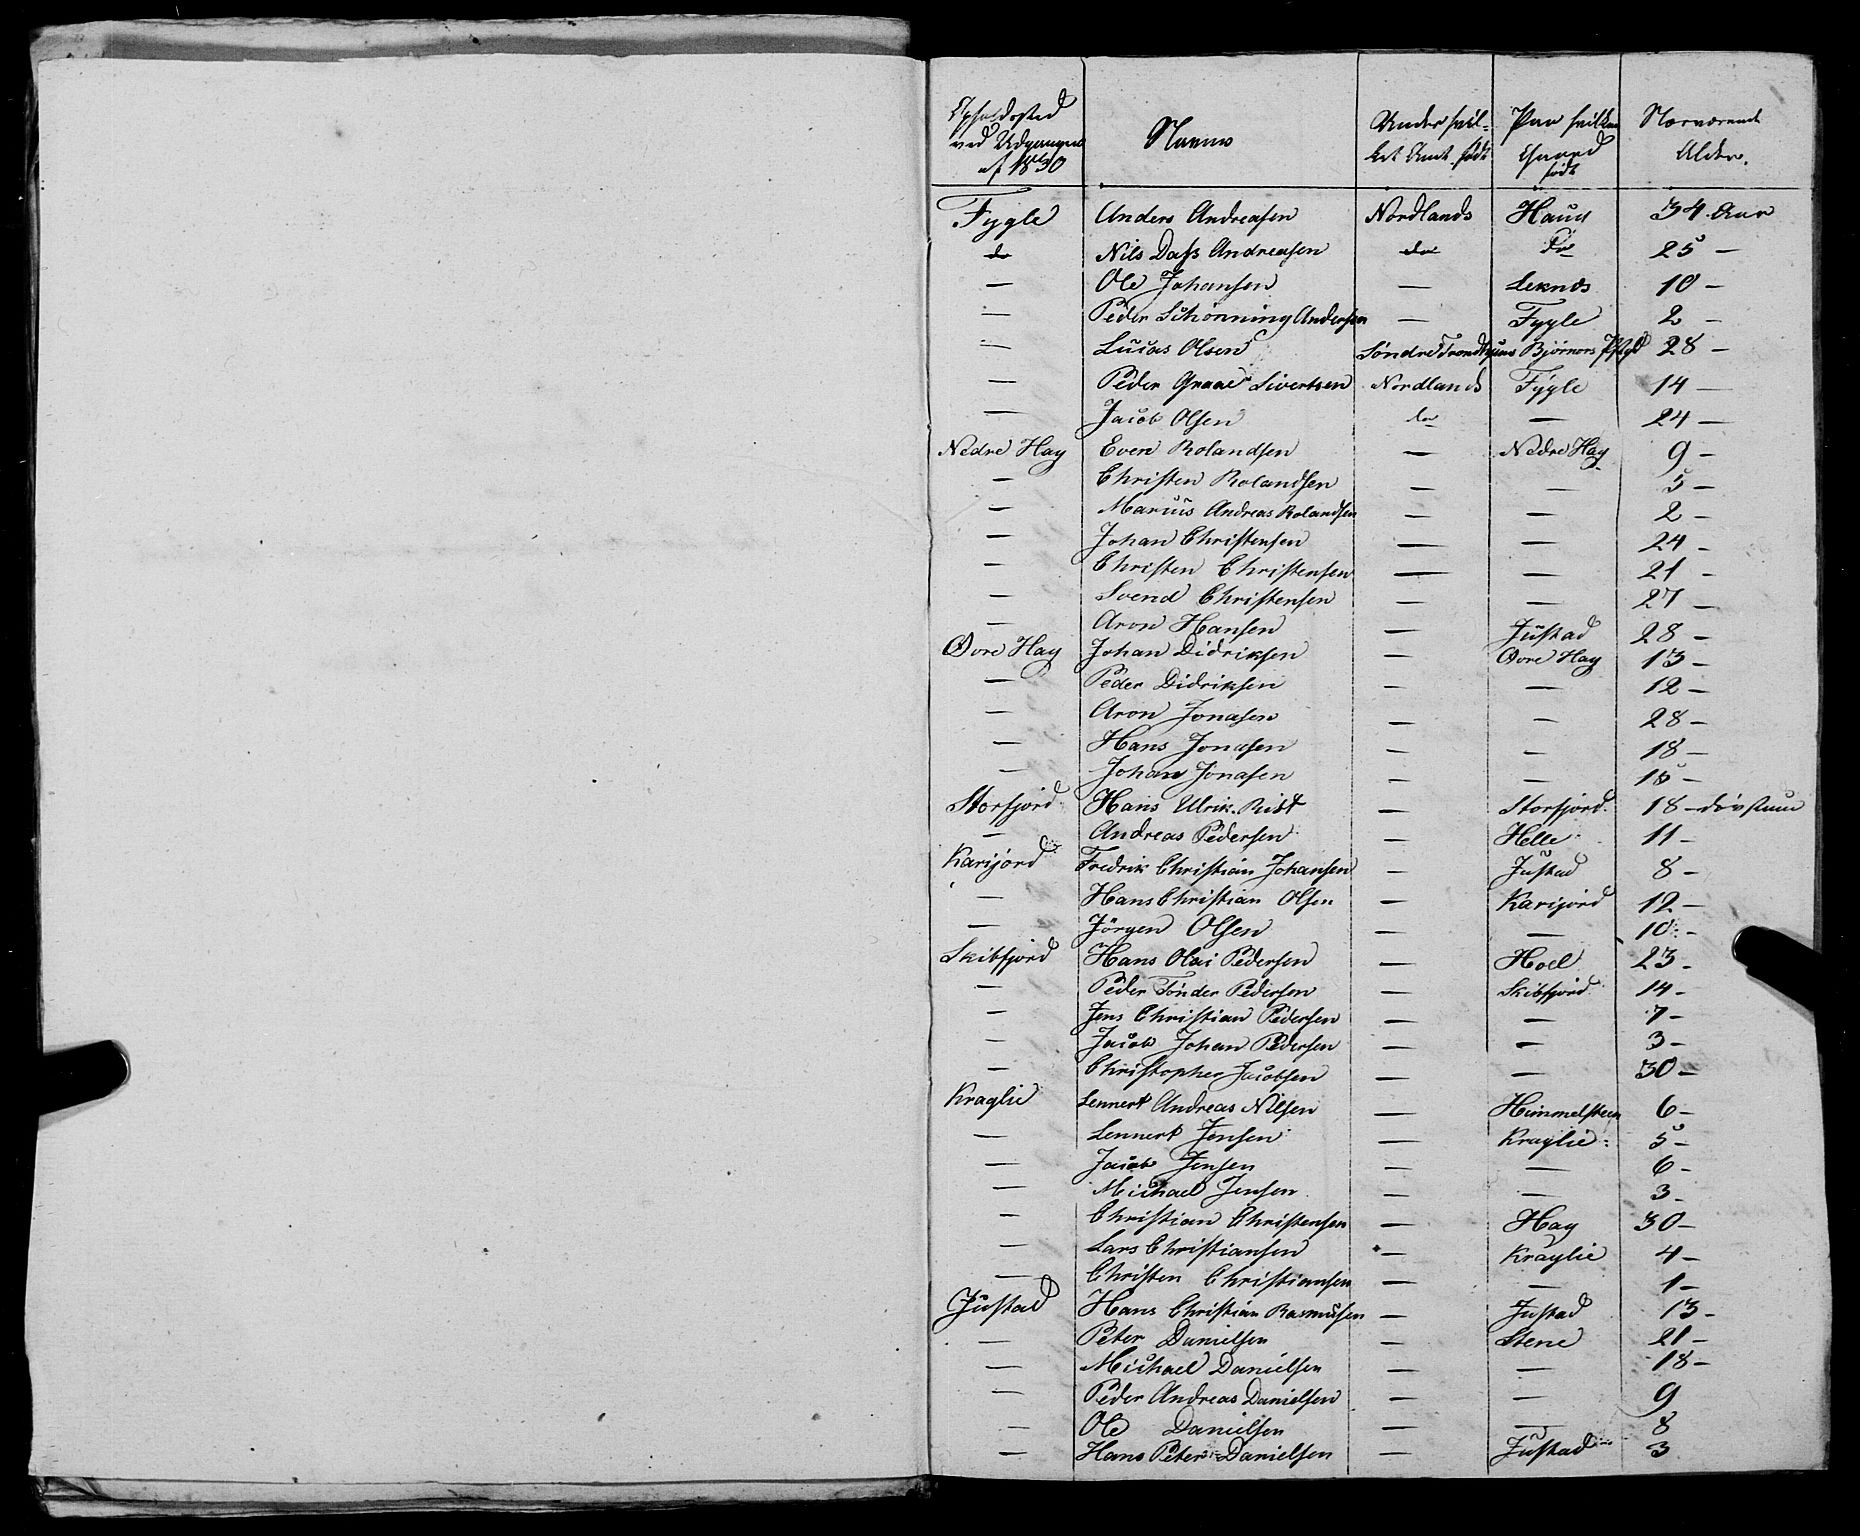 Opholdssted ved Udgangen af 1830 | Navne | Under hvilket Amt født | Paa hvilken Gaard født | Nærværende Alder.
Fygle | Anders Andreasen | Nordlands | Haug | 34 Aar
do | Nils Dass Andreasen | do | do | 25 –
— | Ole Johansen | — | Leknæs | 10 –
— | Peder Schönning Andersen | — | Fygle | 2 –
— | Lucas Olsen | Søndre Trondhjems | Bjørnørs Pgld | 28 –
— | Peder Graae Sivertsen | Nordlands | Fygle | 14 –
— | Jacob Olsen | do | — | 24 –
Nedre Hag | Even Rolandsen | — | Nedre Hag | 9 –
— | Christen Rolandsen | — | — | 5 –
— | Marius Andreas Rolandsen | — | — | 2 –
— | Johan Christensen | — | — | 24 –
— | Christen Christensen | — | — | 21 –
— | Svend Christensen | — | — | 27 –
— | Aron Hansen | — | Justad | 28 –
Øvre Hag | Johan Didriksen | — | Øvre Hag | 13 –
— | Peder Didriksen | — | — | 12 –
— | Aron Jonasen | — | — | 28 –
— | Hans Jonasen | — | — | 18 –
— | Johan Jonasen | — | — | 16 –
Storfjord | Hans Ulrik Rist | — | Storfjord | 18 – døvstum
— | Andreas Pedersen | — | Helle | 11 –
Karijord | Fredrik Christian Johansen | — | Justad | 8 –
— | Hans Christian Olsen | — | Karijord | 12 –
— | Jörgen Olsen | — | — | 10 –
Skibfjord | Hans Olai Pedersen | — | Hoel | 23 –
— | Peder Tönder Pedersen | — | Skibfjord | 14 –
— | Jens Christian Pedersen | — | — | 7 –
— | Jacob Johan Pedersen | — | — | 3 –
— | Christopher Jacobsen | — | — | 30 –
Kraglie | Lennert Andreas Nilsen | — | Himmelsteen | 6 –
— | Lennert Jensen | — | Kraglie | 5 –
— | Jacob Jensen | — | — | 6 –
— | Michael Jensen | — | — | 3 –
— | Christian Christensen | — | Hag | 30 –
— | Lars Christiansen | — | Kraglie | 4 –
— | Christen Christiansen | — | — | 1 –
Justad | Hans Christian Rasmusen | — | Justad | 13 –
— | Peter Danielsen | — | Stene | 21 –
— | Michael Danielsen | — | — | 18 –
— | Peder Andreas Danielsen | — | — | 9
— | Ole Danielsen | — | — | 8
— | Hans Peter Danielsen | — | Justad | 3